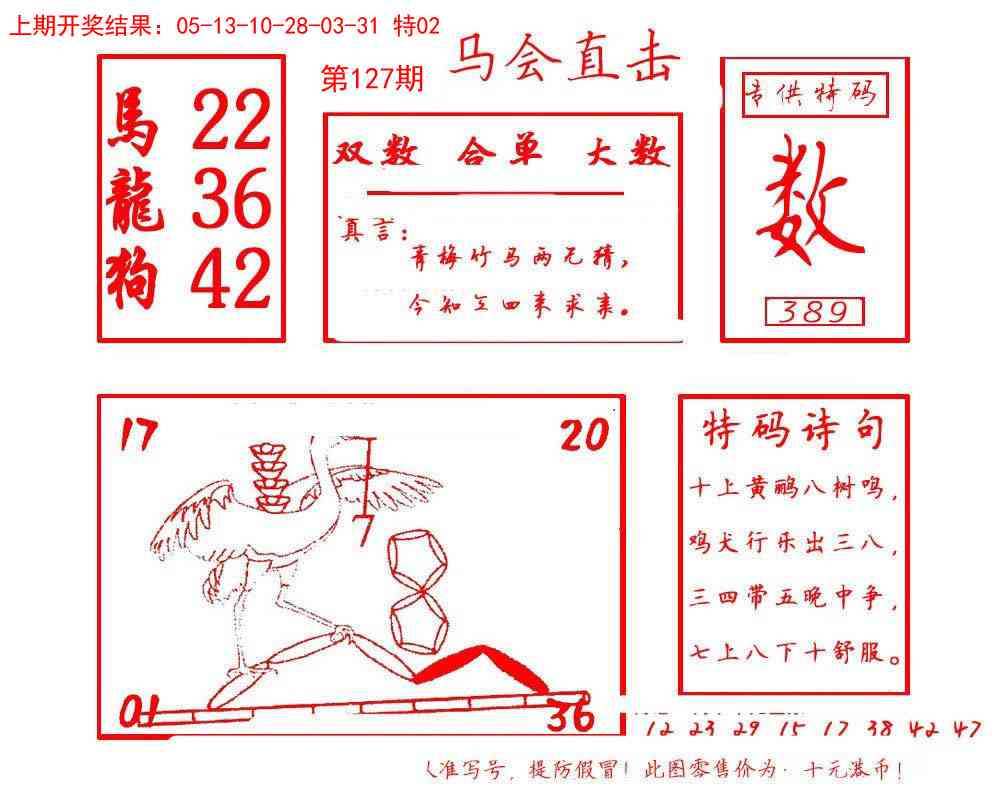 上期开奖结果：05-13-10-28-03-31 特02
第127期
马会直击
馬 22
龍 36
狗 42
双数 合单 大数
真言：
青梅竹马两无猜，
今知立四来求亲。
专供特码
数
389
17
20
7
01
36
特码诗句
十上黄鹂八树鸣，
鸡犬行乐出三八，
三四带五晚中争，
七上八下十舒服。
12 23 29 15 17 38 42 47
准写号，提防假冒！此图零售价为·十元港币！